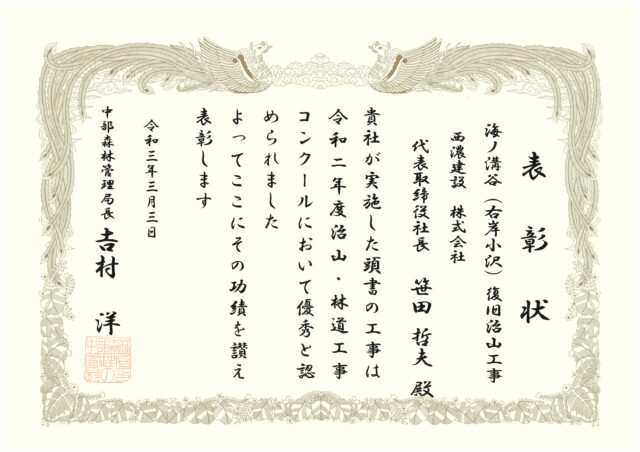 表彰状
海ノ溝谷（右岸小沢）復旧治山工事
西濃建設　株式会社
代表取締役社長　笹田哲夫殿
貴社が実施した頭書の工事は
令和二年度治山・林道工事
コンクールにおいて優秀と認
められました
よってここにその功績を讃え
表彰します
令和三年三月三日
中部森林管理局長　吉村　洋